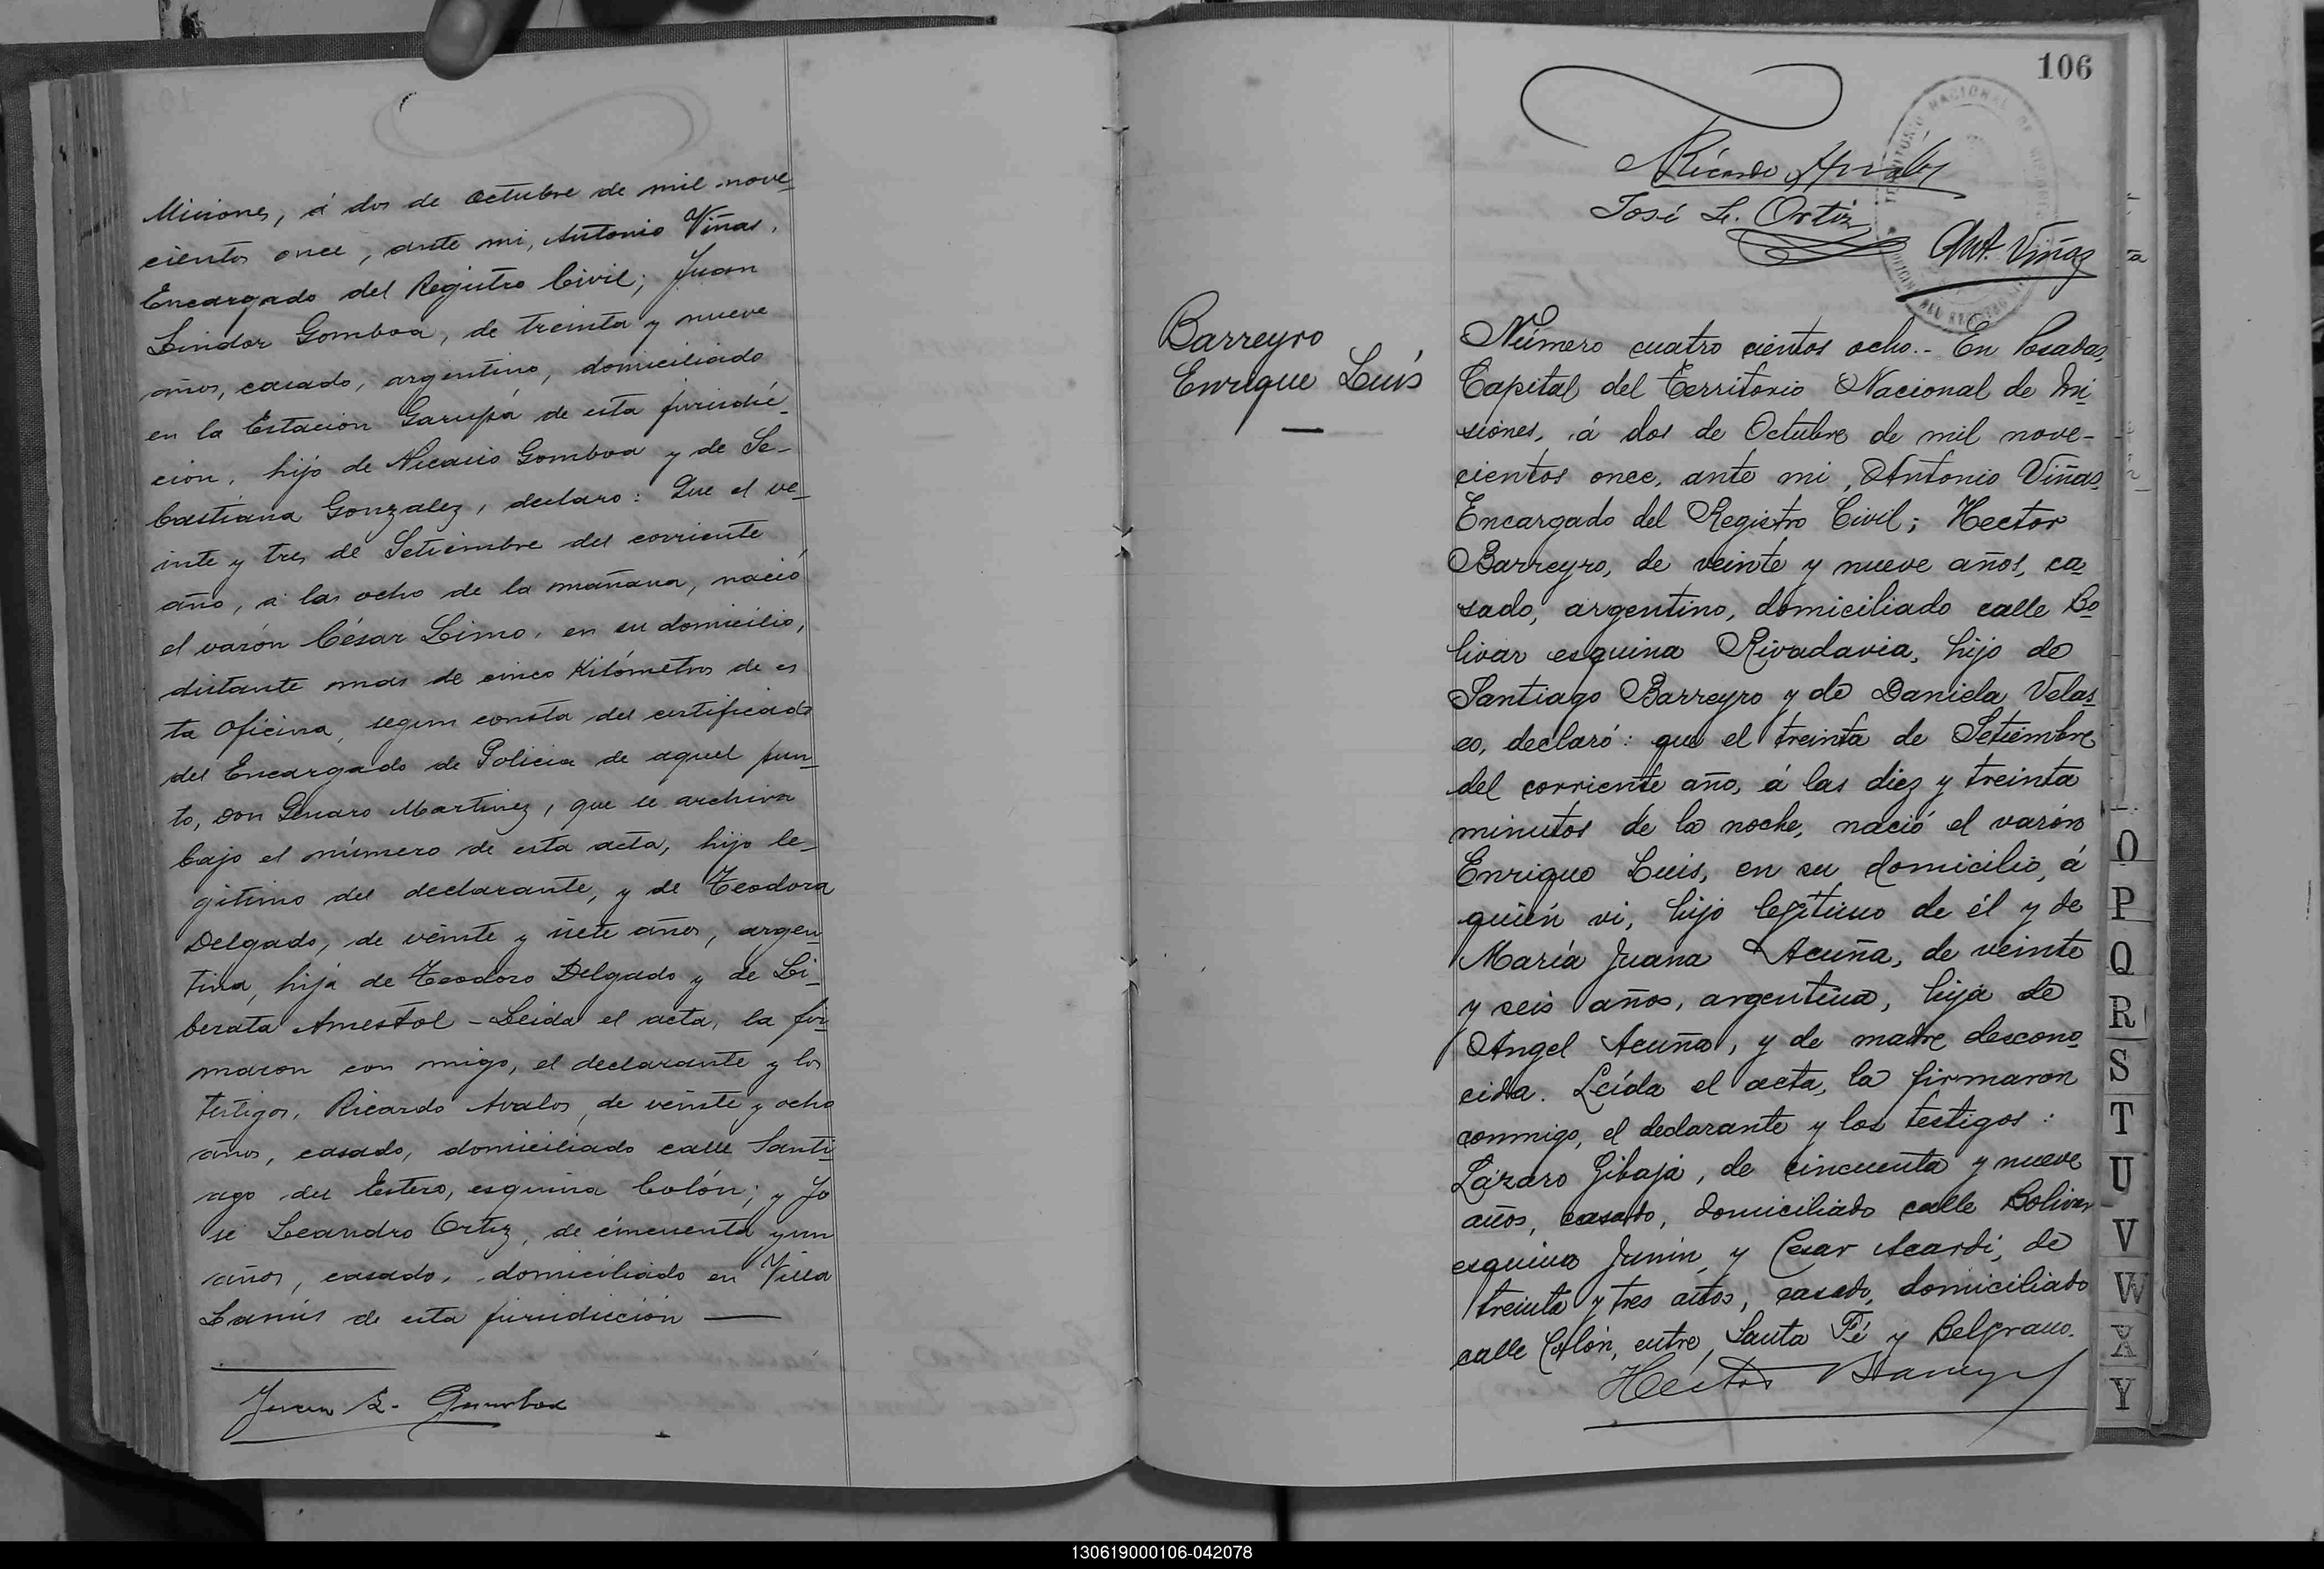 Misiones, á dos de Octubre de mil nove-
cientos once, ante mi, Antonio Viñas,
Encargado del Registro Civil; Juan
Lindor Gomboa, de treinta y nueve
años, casado, argentino, domiciliado
en la Estacion Garupá de esta jurisdic-
cion, hijo de Nicacio Gomboa y de Se-
bastiana Gonzalez, declaro: Que el ve-
inte y tres de Setiembre del corriente
año, a las ocho de la mañana, nació
el varón César Limo, en su domicilio,
distante mas de cinco Kilómetros de es
ta Oficina, segun consta del certificado
del Encargado de Policia de aquel pun-
to, Don Genaro Martinez, que se archiva
bajo el número de esta acta, hijo le-
gitimo del declarante, y de Teodora
Delgado, de veinte y siete años, argen-
tina, hija de Teodoro Delgado y de Li-
berata Amestol - Leida el acta, la fir-
maron con migo, el declarante y los
testigos, Ricardo Avalos, de veinte y ocho
años, casado, domiciliado calle Santi-
ago del Estero, esquina Colón; y Jo
sé Leandro Ortiz, de cincuenta y un
años, casado, domiciliado en Villa
Lanús de esta jurisdiccion —
Juan L. Gomboa
106
Ricardo Avalos
José L. Ortiz
Ant. Viñas
Barreyro
Enrique Luis
Número cuatro cientos ocho.- En Posadas,
Capital del Territorio Nacional de Mi-
siones, á dos de Octubre de mil nove-
cientos once, ante mi, Antonio Viñas,
Encargado del Registro Civil; Hector
Barreyro, de veinte y nueve años, ca-
sado, argentino, domiciliado calle Bo-
livar esquina Rivadavia, hijo de
Santiago Barreyro y de Daniela Velas-
co, declaró: que el treinta de Setiembre
del corriente año, á las diez y treinta
minutos de la noche, nació el varón
Enrique Luis, en su domicilio, á
quién vi, hijo legítimo de él y de
María Juana Acuña, de veinte
y seis años, argentina, hija de
Angel Acuña, y de madre descono-
cida. Leída el acta, la firmaron
conmigo, el declarante y los testigos:
Lázaro Gibaja, de cincuenta y nueve
años, casado, domiciliado calle Bolivar
esquina Junin, y Cesar Acardi, de
treinta y tres años, casado, domiciliado
calle Colón, entre Santa Fé y Belgrano.
Héctor Barreyro
O
P
Q
R
S
T
U
V
W
X
Y
130619000106-042078